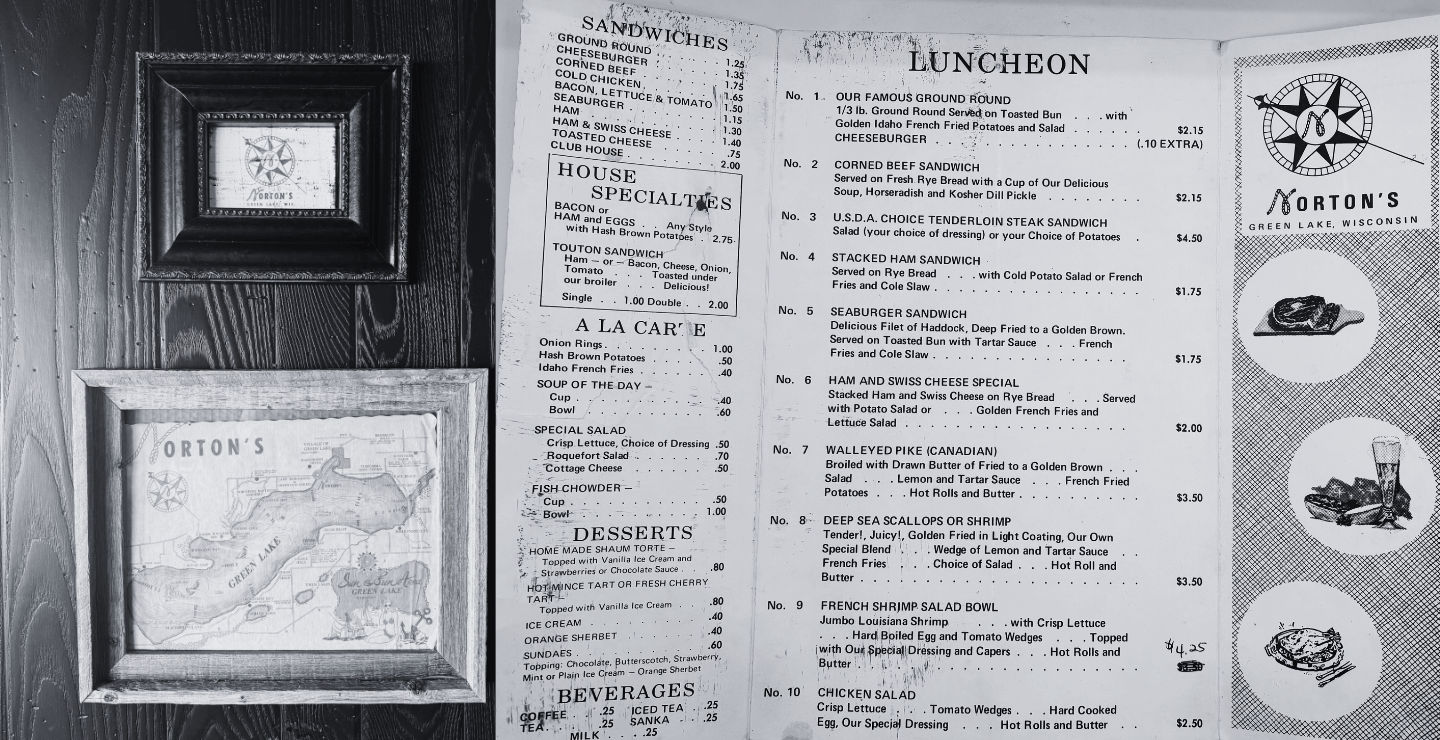 NORTON'S
GREEN LAKE, WIS.
NORTON'S
GREEN LAKE
GREEN LAKE
SANDWICHES
GROUND ROUND . . . . . . 1.25
CHEESEBURGER . . . . . . 1.35
CORNED BEEF . . . . . . 1.75
COLD CHICKEN . . . . . . 1.65
BACON, LETTUCE & TOMATO 1.50
SEABURGER . . . . . . 1.15
HAM . . . . . . 1.30
HAM & SWISS CHEESE . . . . 1.40
TOASTED CHEESE . . . . . .75
CLUB HOUSE . . . . . . 2.00
HOUSE
SPECIALTIES
BACON or
HAM and EGGS . . Any Style
with Hash Brown Potatoes . 2.75
TOUTON SANDWICH
Ham — or — Bacon, Cheese, Onion,
Tomato . . . Toasted under
our broiler . . . Delicious!
Single . . 1.00 Double . . 2.00
A LA CARTE
Onion Rings . . . . . . 1.00
Hash Brown Potatoes . . . . .50
Idaho French Fries . . . . .40
SOUP OF THE DAY —
Cup . . . . . . .40
Bowl . . . . . . .60
SPECIAL SALAD
Crisp Lettuce, Choice of Dressing .50
Roquefort Salad . . . . . .70
Cottage Cheese . . . . . .50
FISH CHOWDER —
Cup . . . . . . .50
Bowl . . . . . . 1.00
DESSERTS
HOME MADE SHAUM TORTE —
Topped with Vanilla Ice Cream and
Strawberries or Chocolate Sauce . .80
HOT MINCE TART OR FRESH CHERRY
TART —
Topped with Vanilla Ice Cream . . .80
ICE CREAM . . . . . . .40
ORANGE SHERBET . . . . . .40
SUNDAES . . . . . . .60
Topping: Chocolate, Butterscotch, Strawberry,
Mint or Plain Ice Cream — Orange Sherbet
BEVERAGES
COFFEE . . .25 ICED TEA . . .25
TEA . . . .25 SANKA . . .25
MILK . . . .25
LUNCHEON
No. 1 OUR FAMOUS GROUND ROUND
1/3 lb. Ground Round Served on Toasted Bun . . . with
Golden Idaho French Fried Potatoes and Salad . . . . . . $2.15
CHEESEBURGER . . . . . . (.10 EXTRA)
No. 2 CORNED BEEF SANDWICH
Served on Fresh Rye Bread with a Cup of Our Delicious
Soup, Horseradish and Kosher Dill Pickle . . . . . . $2.15
No. 3 U.S.D.A. CHOICE TENDERLOIN STEAK SANDWICH
Salad (your choice of dressing) or your Choice of Potatoes . $4.50
No. 4 STACKED HAM SANDWICH
Served on Rye Bread . . . with Cold Potato Salad or French
Fries and Cole Slaw . . . . . . $1.75
No. 5 SEABURGER SANDWICH
Delicious Filet of Haddock, Deep Fried to a Golden Brown.
Served on Toasted Bun with Tartar Sauce . . . French
Fries and Cole Slaw . . . . . . $1.75
No. 6 HAM AND SWISS CHEESE SPECIAL
Stacked Ham and Swiss Cheese on Rye Bread . . . Served
with Potato Salad or . . . Golden French Fries and
Lettuce Salad . . . . . . $2.00
No. 7 WALLEYED PIKE (CANADIAN)
Broiled with Drawn Butter of Fried to a Golden Brown . . .
Salad . . . Lemon and Tartar Sauce . . . French Fried
Potatoes . . . Hot Rolls and Butter . . . . . . $3.50
No. 8 DEEP SEA SCALLOPS OR SHRIMP
Tender!, Juicy!, Golden Fried in Light Coating, Our Own
Special Blend . . . Wedge of Lemon and Tartar Sauce . .
French Fries . . . Choice of Salad . . . Hot Roll and
Butter . . . . . . $3.50
No. 9 FRENCH SHRIMP SALAD BOWL
Jumbo Louisiana Shrimp . . . with Crisp Lettuce
. . . Hard Boiled Egg and Tomato Wedges . . . Topped
with Our Special Dressing and Capers . . . Hot Rolls and $4.25
Butter . . . . . .
No. 10 CHICKEN SALAD
Crisp Lettuce . . . Tomato Wedges . . . Hard Cooked
Egg, Our Special Dressing . . . Hot Rolls and Butter . . $2.50
N
NORTON'S
GREEN LAKE, WISCONSIN